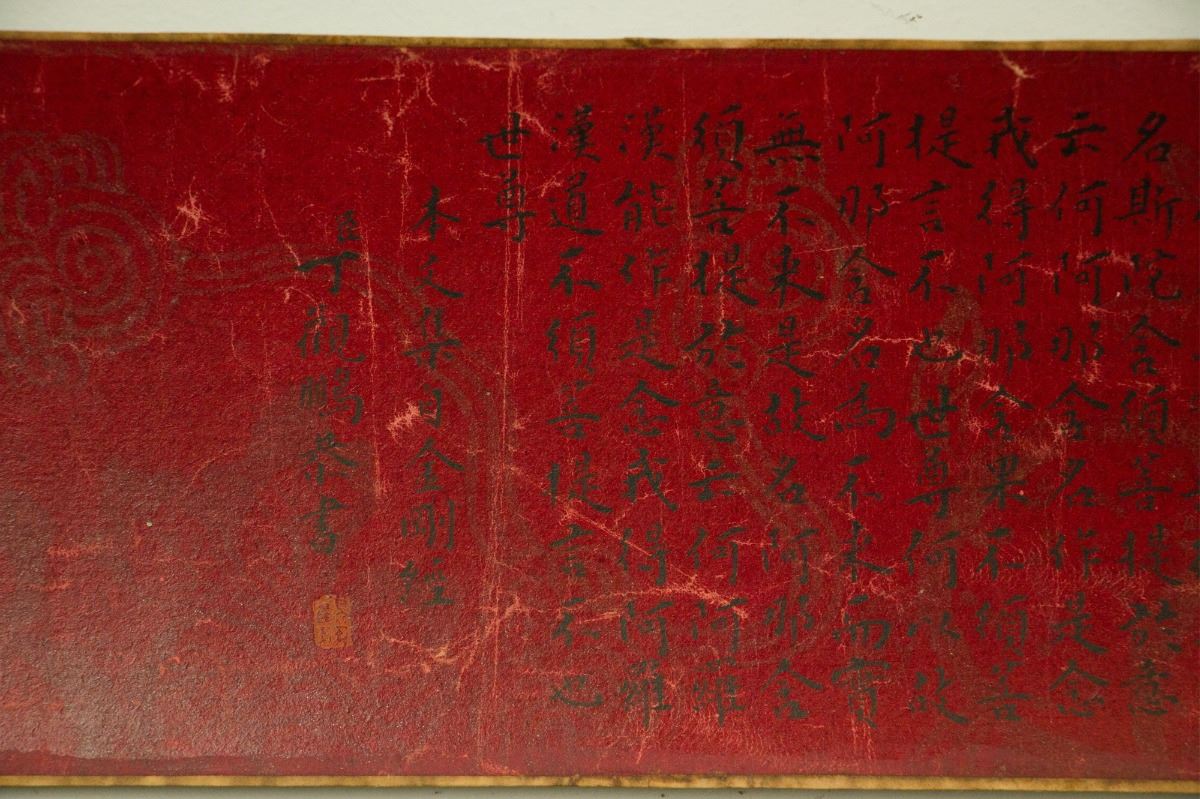 名斯陀含須菩提於意
云何阿那含名作是念
我得阿那含果不須菩
提言不也世尊何以故
阿那含名為不来而實
無不来是故名阿那含
須菩提於意云何阿羅
漢能作是念我得阿羅
漢道不須菩提言不也
世尊
本文集自金剛經
臣丁觀鵬恭書